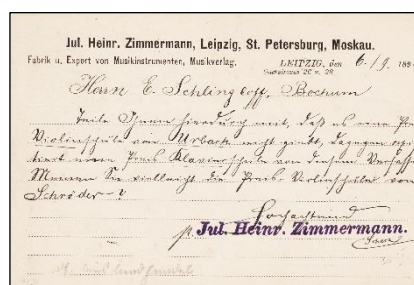 Jul. Heinr. Zimmermann, Leipzig, St. Petersburg, Moskau.
Fabrik u. Export von Musikinstrumenten, Musikverlag.
LEIPZIG, den 6./9. 189
Herrn E. Schlinghoff, Bochum
Teile Ihnen hierdurch mit, daß es eine
Violinschule von Urbach nicht giebt, dagegen
tiert eine Preis Klavierschule von diesem
Meinen Sie vielleicht die Preis Violinschule von
Schröder-?
Hochachtend
p. Jul. Heinr. Zimmermann.